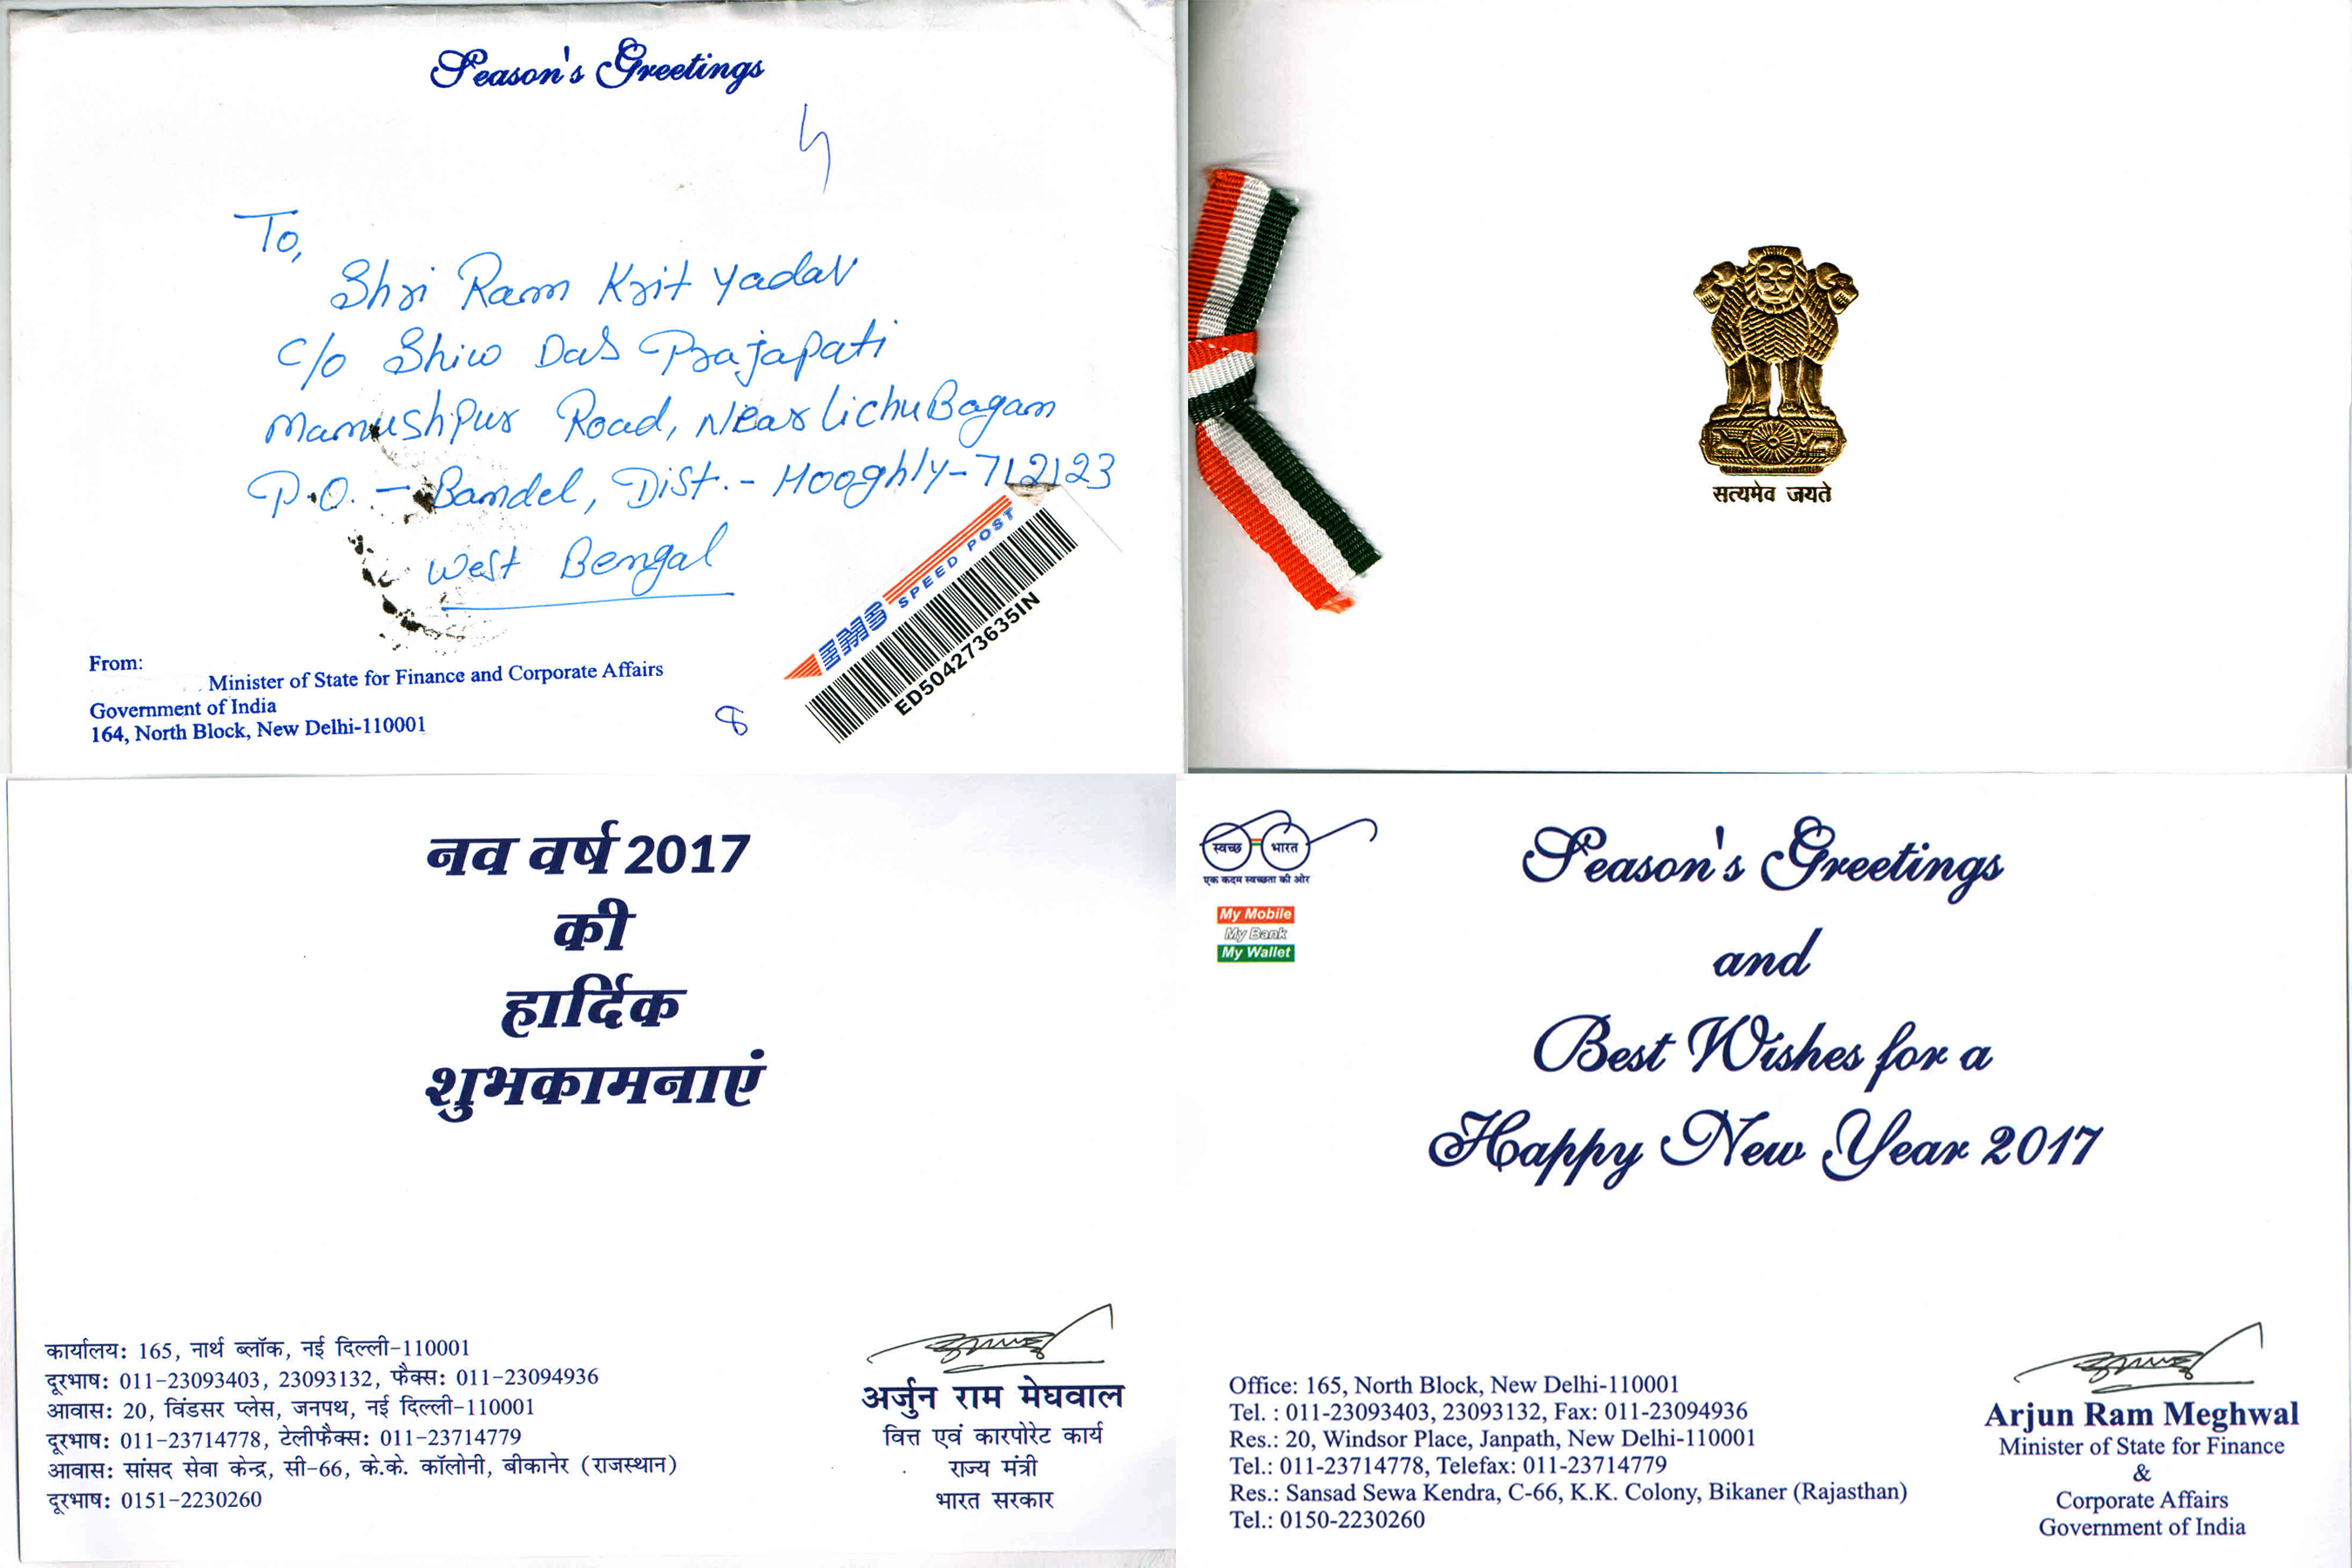 Season's Greetings
To,
Shri Ram Krit Yadav
C/o Shiw Das Prajapati
Manushpur Road, Near Lichu Bagan
P.O. - Bandel, Dist. - Hooghly - 712123
West Bengal
EMS SPEED POST
ED504273635IN
From:
Minister of State for Finance and Corporate Affairs
Government of India
164, North Block, New Delhi-110001
8
सत्यमेव जयते
नव वर्ष 2017
की
हार्दिक
शुभकामनाएं
कार्यालय: 165, नार्थ ब्लॉक, नई दिल्ली-110001
दूरभाष: 011-23093403, 23093132, फैक्स: 011-23094936
आवास: 20, विंडसर प्लेस, जनपथ, नई दिल्ली-110001
दूरभाष: 011-23714778, टेलीफैक्स: 011-23714779
आवास: सांसद सेवा केन्द्र, सी-66, के.के. कॉलोनी, बीकानेर (राजस्थान)
दूरभाष: 0151-2230260
अर्जुन राम मेघवाल
वित्त एवं कारपोरेट कार्य
राज्य मंत्री
भारत सरकार
स्वच्छ भारत
एक कदम स्वच्छता की ओर
My Mobile
My Bank
My Wallet
Season's Greetings
and
Best Wishes for a
Happy New Year 2017
Office: 165, North Block, New Delhi-110001
Tel. : 011-23093403, 23093132, Fax: 011-23094936
Res.: 20, Windsor Place, Janpath, New Delhi-110001
Tel.: 011-23714778, Telefax: 011-23714779
Res.: Sansad Sewa Kendra, C-66, K.K. Colony, Bikaner (Rajasthan)
Tel.: 0150-2230260
Arjun Ram Meghwal
Minister of State for Finance
&
Corporate Affairs
Government of India